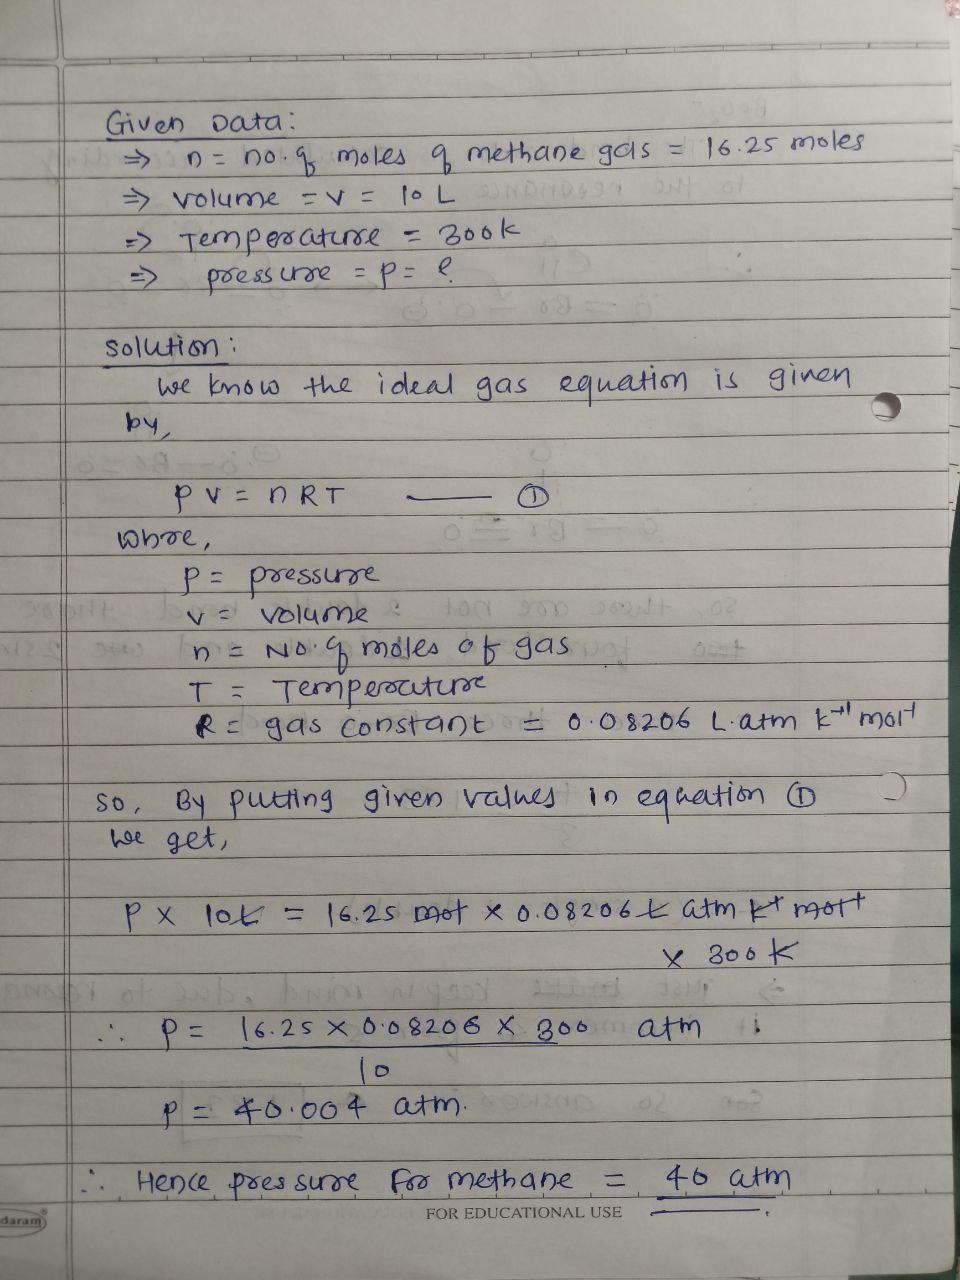 Given Data:
⇒ n = no. of moles of methane gas = 16.25 moles
⇒ volume = v = 10 L
⇒ Temperature = 300k
⇒ pressure = p = ?
solution:
We know the ideal gas equation is given
by,
PV = nRT —— ①
where,
P = pressure
v = volume
n = No. of moles of gas
T = Temperature
R = gas constant = 0.08206 L.atm k⁻¹ mol⁻¹
so, By putting given values in equation ①
we get,
P x 10L = 16.25 mol x 0.08206 L atm k⁻¹ mol⁻¹
x 300k
∴ P = 16.25 x 0.08206 x 300 atm
10
P = 40.004 atm.
∴ Hence pressure for methane = 40 atm
daram®
FOR EDUCATIONAL USE